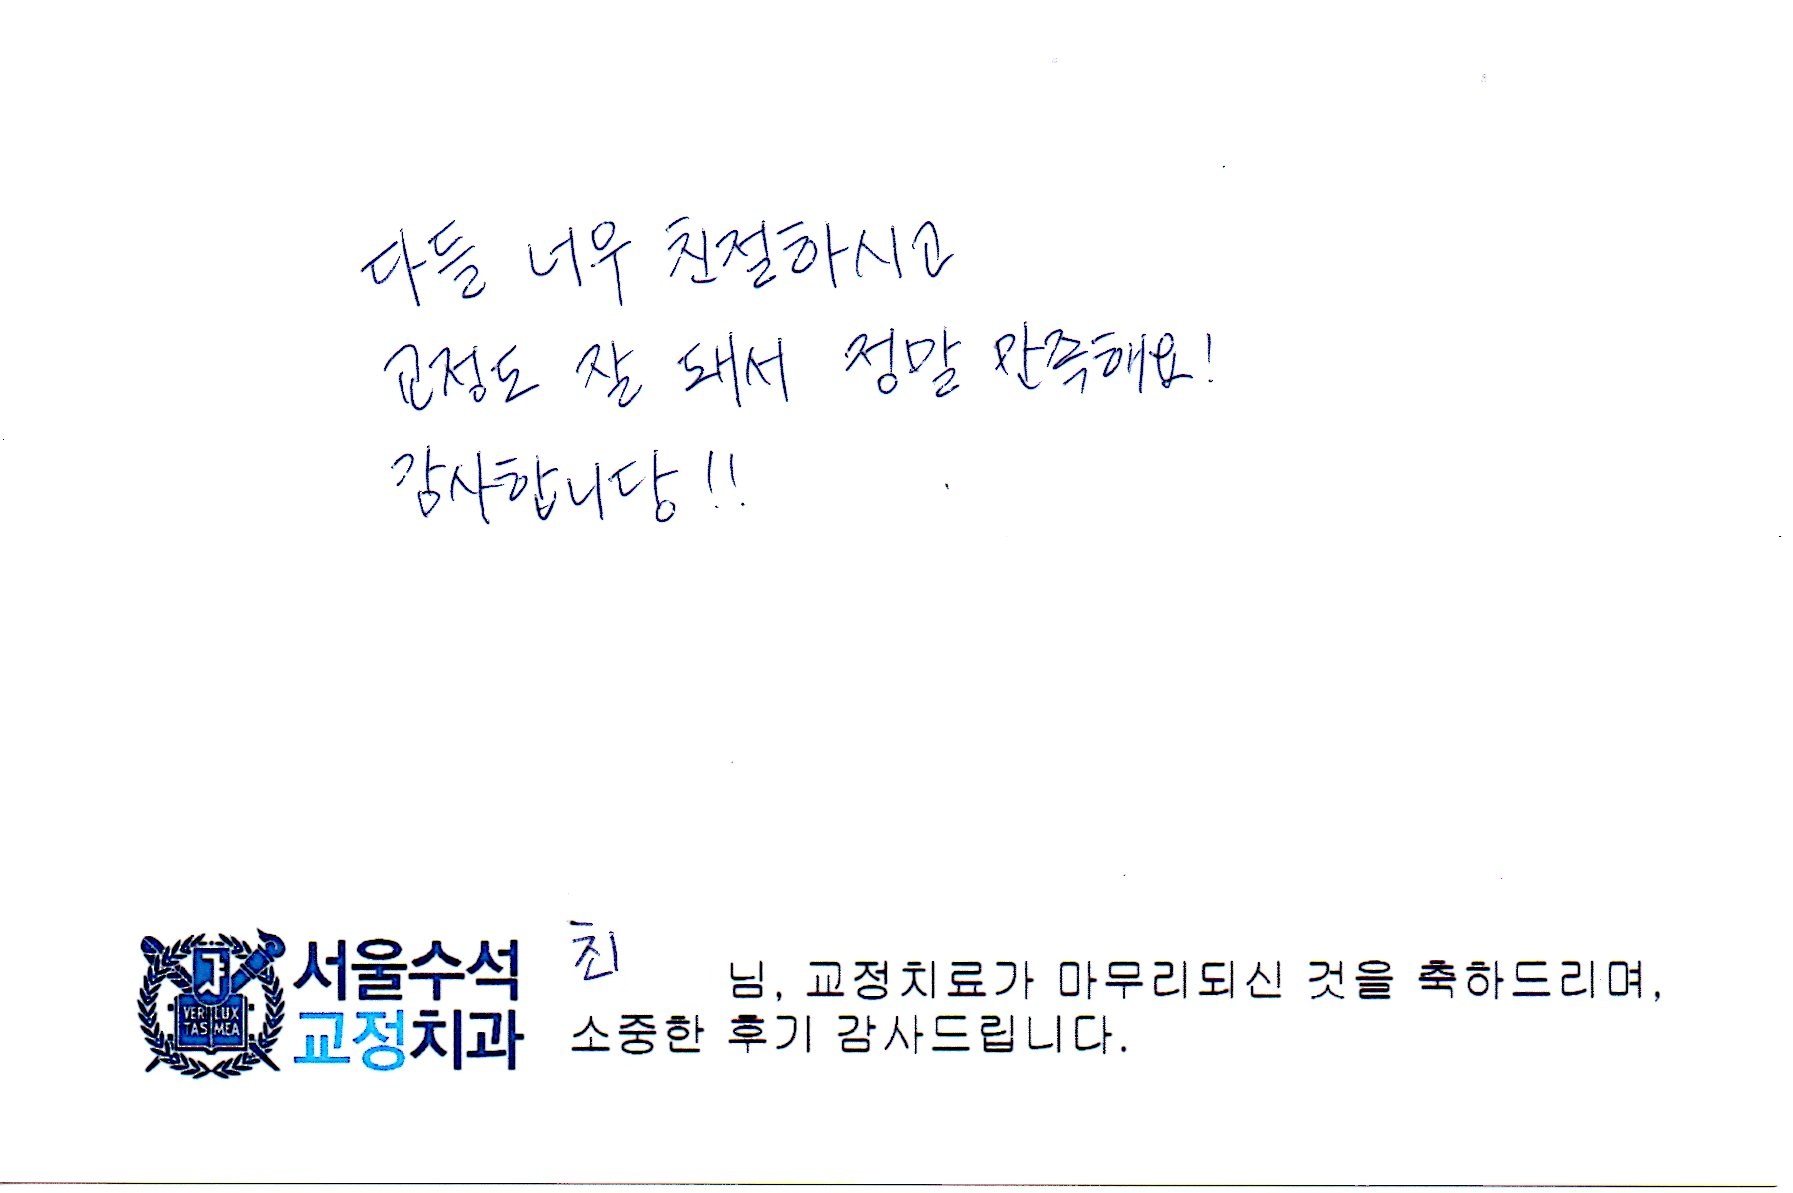 다들 너무 친절하시고
교정도 잘 돼서 정말 만족해요!
감사합니당!!
VERI LUX
TAS MEA
서울수석
교정치과
최 님, 교정치료가 마무리되신 것을 축하드리며,
소중한 후기 감사드립니다.